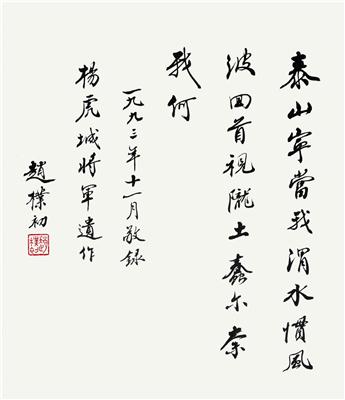 泰山寧當我渭水慣風
波回首視隴土蠢尔柰
我何
一九九三年十一月敬録
楊虎城將軍遺作
趙樸初